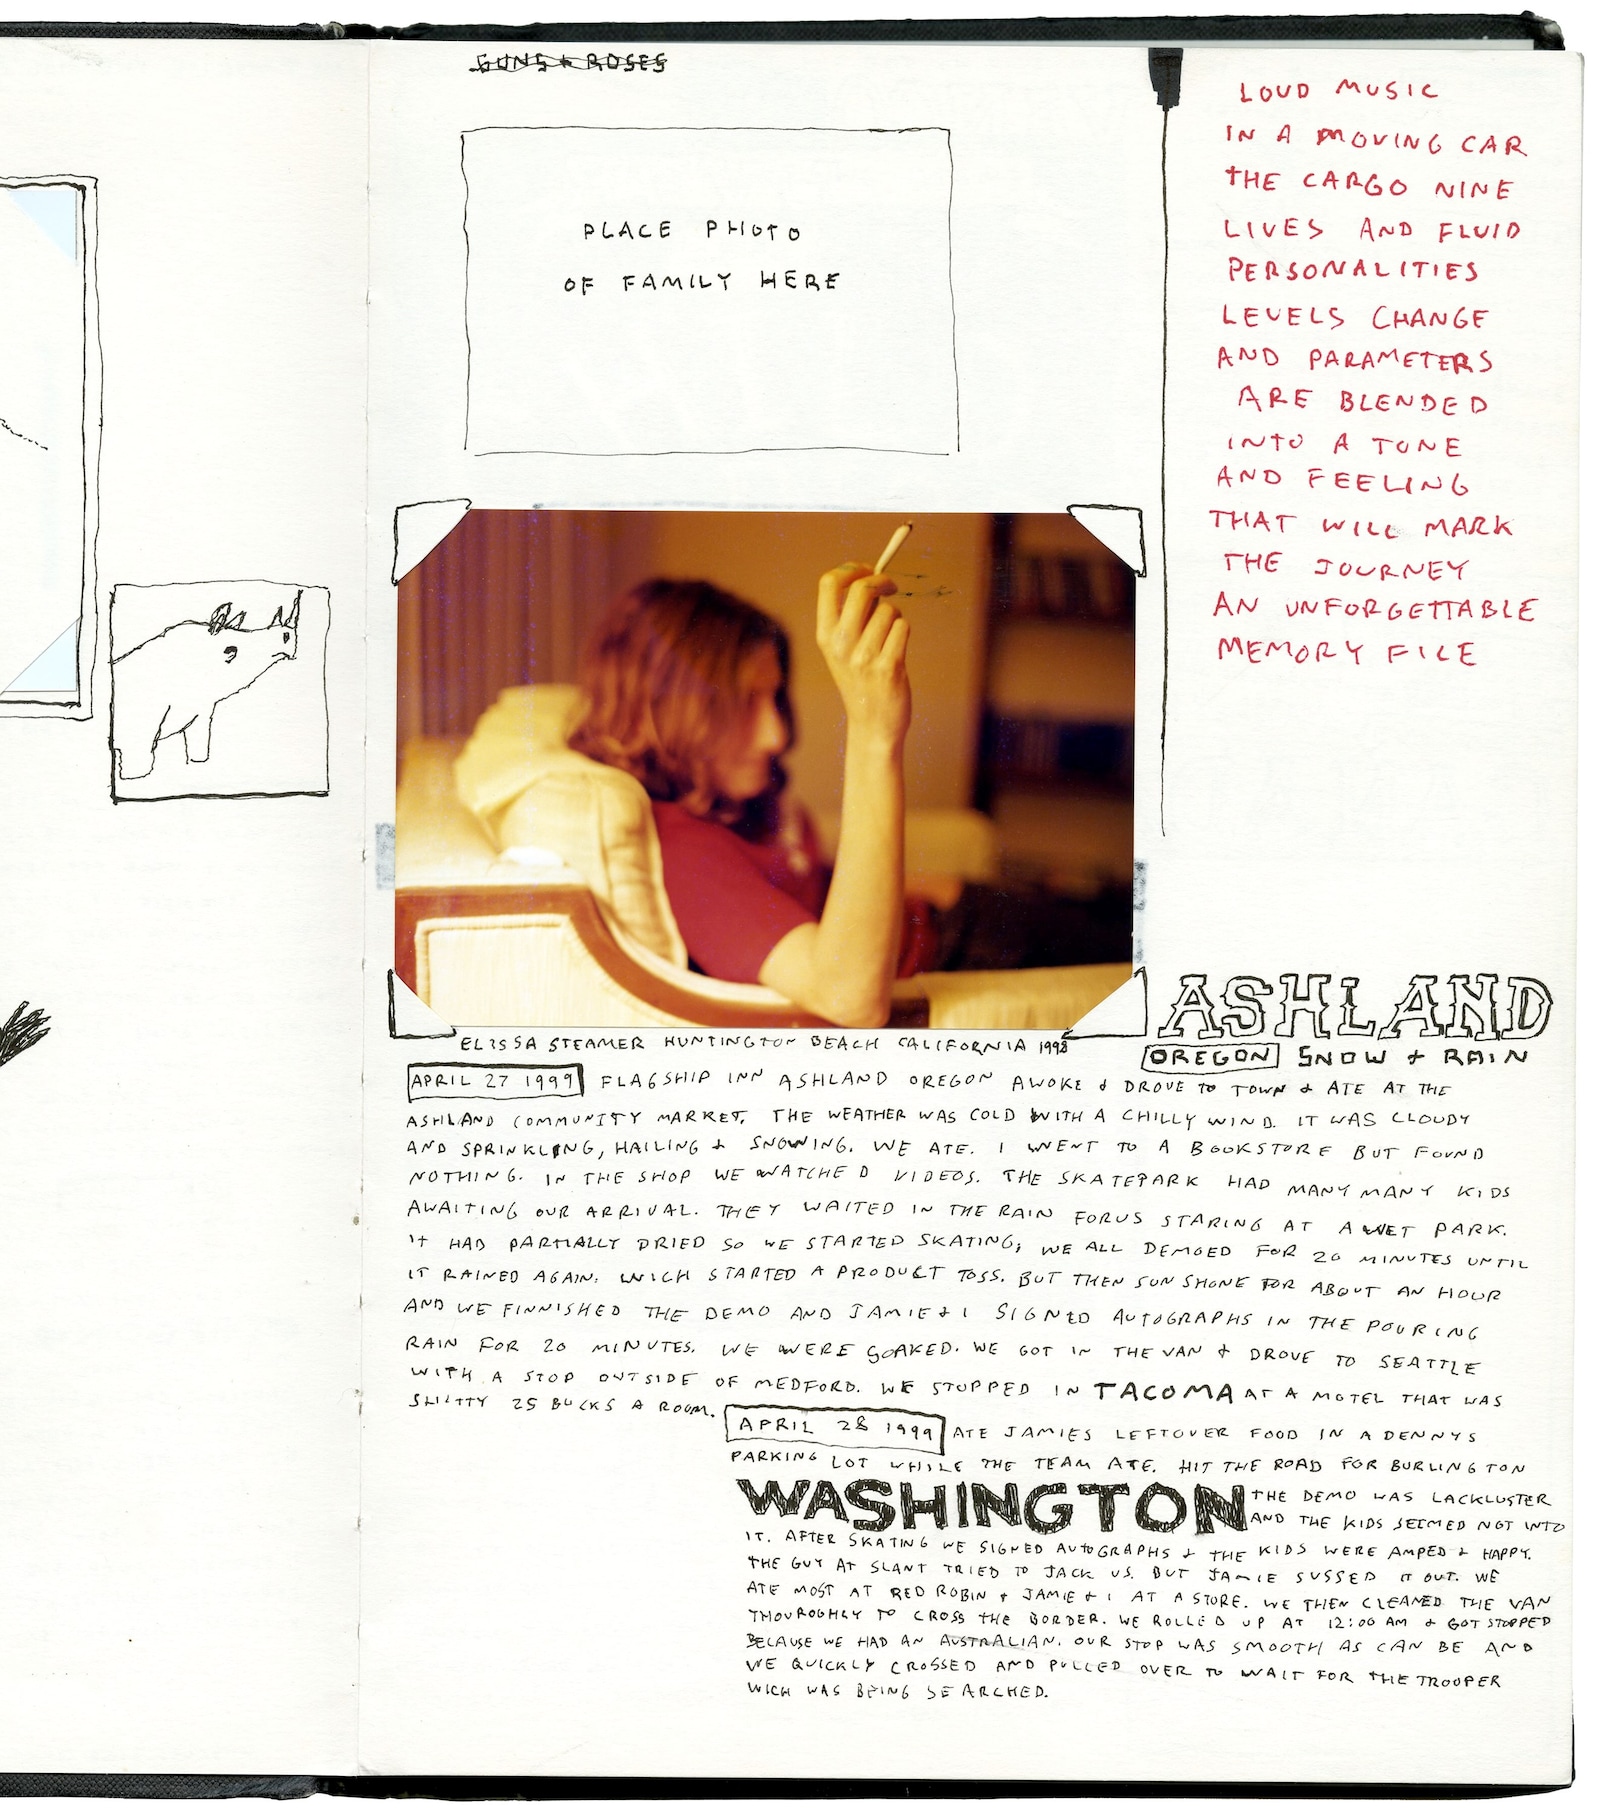 GUNS + ROSES
PLACE PHOTO
OF FAMILY HERE
LOUD MUSIC
IN A MOVING CAR
THE CARGO NINE
LIVES AND FLUID
PERSONALITIES
LEVELS CHANGE
AND PARAMETERS
ARE BLENDED
INTO A TONE
AND FEELING
THAT WILL MARK
THE JOURNEY
AN UNFORGETTABLE
MEMORY FILE
ELISSA STEAMER HUNTINGTON BEACH CALIFORNIA 1998
ASHLAND
OREGON SNOW + RAIN
APRIL 27 1999 FLAGSHIP INN ASHLAND OREGON AWOKE & DROVE TO TOWN & ATE AT THE
ASHLAND COMMUNITY MARKET. THE WEATHER WAS COLD WITH A CHILLY WIND. IT WAS CLOUDY
AND SPRINKLING, HAILING & SNOWING. WE ATE. I WENT TO A BOOKSTORE BUT FOUND
NOTHING. IN THE SHOP WE WATCHED VIDEOS. THE SKATEPARK HAD MANY MANY KIDS
AWAITING OUR ARRIVAL. THEY WAITED IN THE RAIN FOR US STARING AT A WET PARK.
IT HAD PARTIALLY DRIED SO WE STARTED SKATING; WE ALL DEMOED FOR 20 MINUTES UNTIL
IT RAINED AGAIN. WICH STARTED A PRODUCT TOSS. BUT THEN SUN SHONE FOR ABOUT AN HOUR
AND WE FINNISHED THE DEMO AND JAMIE & I SIGNED AUTOGRAPHS IN THE POURING
RAIN FOR 20 MINUTES. WE WERE SOAKED. WE GOT IN THE VAN & DROVE TO SEATTLE
WITH A STOP OUTSIDE OF MEDFORD. WE STOPPED IN TACOMA AT A MOTEL THAT WAS
SHITTY 25 BUCKS A ROOM.
APRIL 28 1999 ATE JAMIES LEFTOVER FOOD IN A DENNYS
PARKING LOT WHILE THE TEAM ATE. HIT THE ROAD FOR BURLINGTON
WASHINGTON THE DEMO WAS LACKLUSTER
AND THE KIDS SEEMED NOT INTO
IT. AFTER SKATING WE SIGNED AUTOGRAPHS & THE KIDS WERE AMPED & HAPPY.
THE GUY AT SLANT TRIED TO JACK US. BUT JAMIE SUSSED IT OUT. WE
ATE MOST AT RED ROBIN & JAMIE & I AT A STORE. WE THEN CLEANED THE VAN
THOUROGHLY TO CROSS THE BORDER. WE ROLLED UP AT 12:00 AM & GOT STOPPED
BECAUSE WE HAD AN AUSTRALIAN. OUR STOP WAS SMOOTH AS CAN BE AND
WE QUICKLY CROSSED AND PULLED OVER TO WAIT FOR THE TROOPER
WICH WAS BEING SEARCHED.